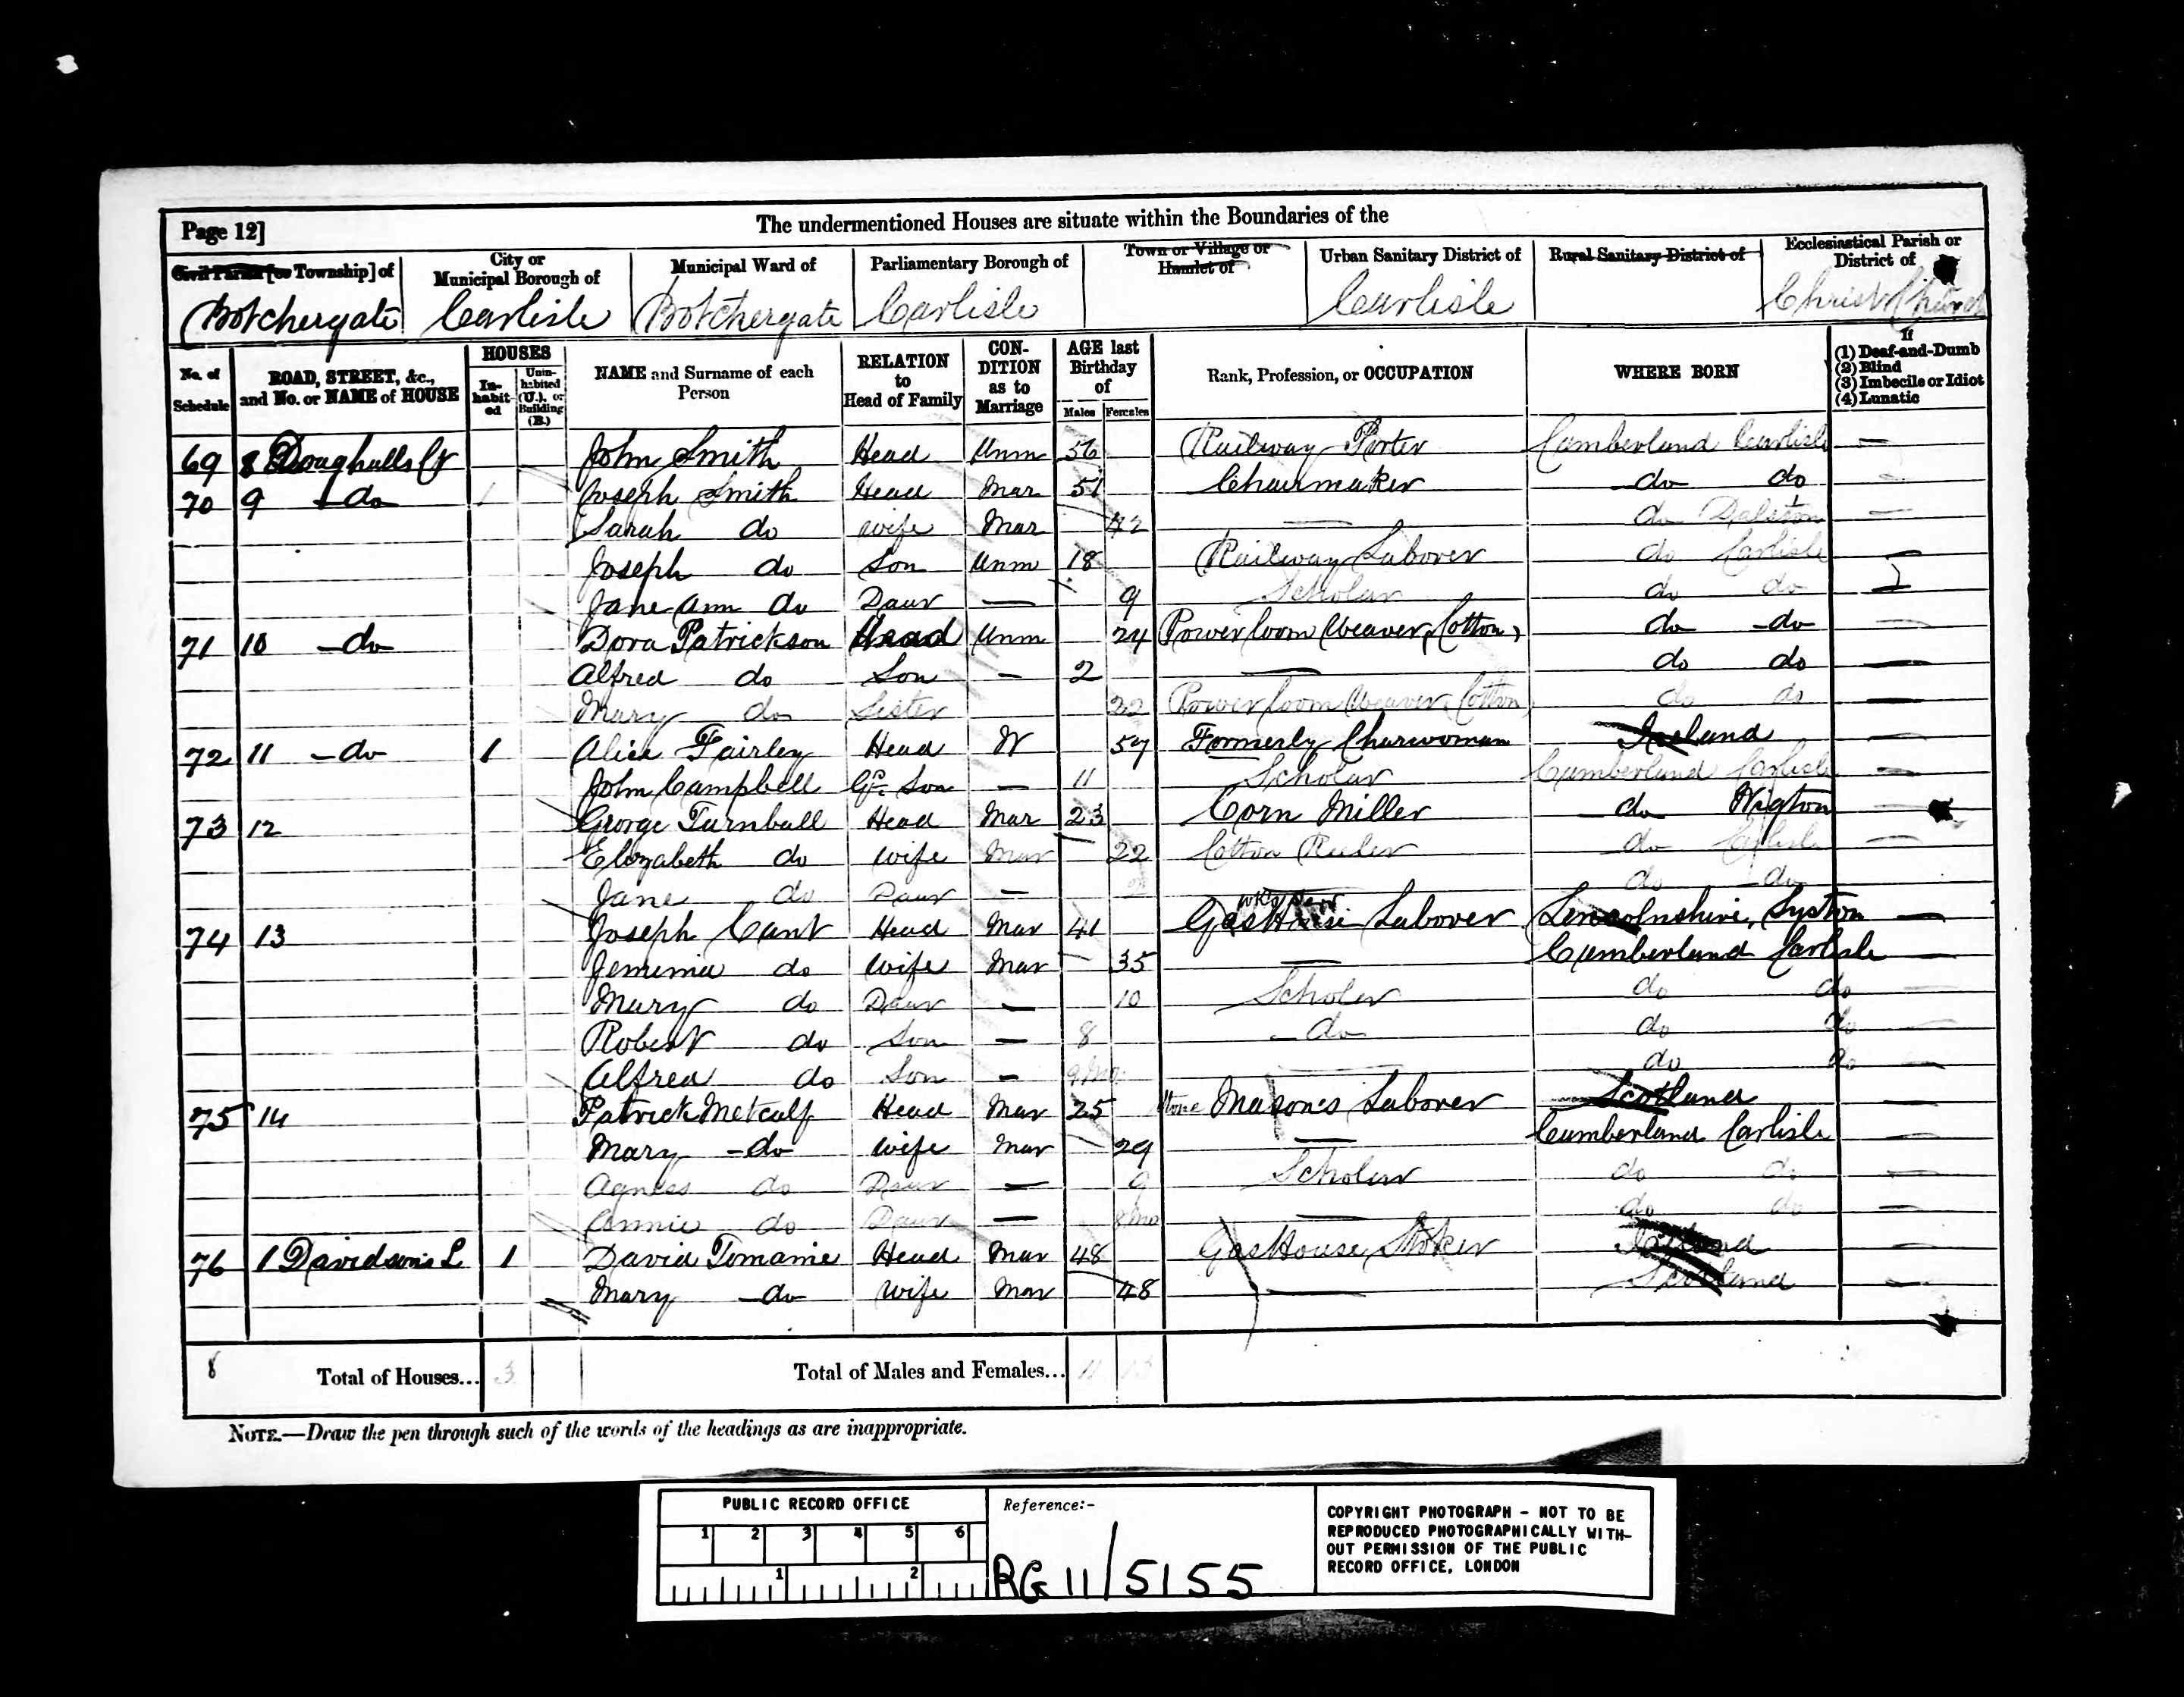 Page 12]
The undermentioned Houses are situate within the Boundaries of the
Civil Parish [or Township] of
City or Municipal Borough of
Municipal Ward of
Parliamentary Borough of
Town or Village or Hamlet of
Urban Sanitary District of
Rural Sanitary District of
Ecclesiastical Parish or District of
Botchergate Carlisle Botchergate Carlisle Carlisle Christ Church
No. of Schedule
ROAD, STREET, &c., and No. or NAME of HOUSE
HOUSES
In-habit-ed
Unin-habited (U.), or Building (B.)
NAME and Surname of each Person
RELATION to Head of Family
CON-DITION as to Marriage
AGE last Birthday of
Males Females
Rank, Profession, or OCCUPATION
WHERE BORN
If
(1) Deaf-and-Dumb
(2) Blind
(3) Imbecile or Idiot
(4) Lunatic
69 8 John Smith Head Unm 56 Railway Porter Cumberland Carlisle —
70 9 do 1 Joseph Smith Head Mar 51 Chairmaker do do
Sarah do wife Mar 42 — do Dalston —
Joseph do Son Unm 18 Railway Laborer do Carlisle —
Jane Ann do Daur — 9 Scholar do do
71 10 do Dora Patrickson Head Unm 24 Power loom Weaver (Cotton) do do
Alfred do Son — 2 — do do —
Mary do Sister Power loom Weaver (Cotton) do do —
72 11 do 1 Alice Fairley Head W 57 Formerly Charwoman Ireland
John Campbell Gd. Son — 11 Scholar Cumberland Carlisle —
73 12 George Turnbull Head Mar 23 Corn Miller do Wigton
Elizabeth do wife Mar 22 Cotton Reeler do Carlisle —
Jane do Daur — do do
74 13 Joseph Cant Head Mar 41 Gas House Laborer Lincolnshire, Syston —
Jemima do wife Mar 35 — Cumberland Carlisle —
Mary do Daur — 10 Scholar do do —
Robert do Son — 8 do do do —
Alfred do Son — 9 Mo do do —
75 14 Patrick Metcalf Head Mar 25 Stone Masons Laborer Scotland
Mary do wife Mar 29 — Cumberland Carlisle —
Agness do Daur — 9 Scholar do do —
Annie do Daur — 8 Mo — do do —
76 1 Davidsons L 1 David Tomanie Head Mar 48 Gas House, Stoker Ireland
Mary do wife Mar 48 — Scotland —
8 Total of Houses... 3 Total of Males and Females... 11 13
NOTE.—Draw the pen through such of the words of the headings as are inappropriate.
PUBLIC RECORD OFFICE
1 2 3 4 5 6
1 2
Reference:-
RG 11/5155
COPYRIGHT PHOTOGRAPH - NOT TO BE
REPRODUCED PHOTOGRAPHICALLY WITH-
OUT PERMISSION OF THE PUBLIC
RECORD OFFICE, LONDON